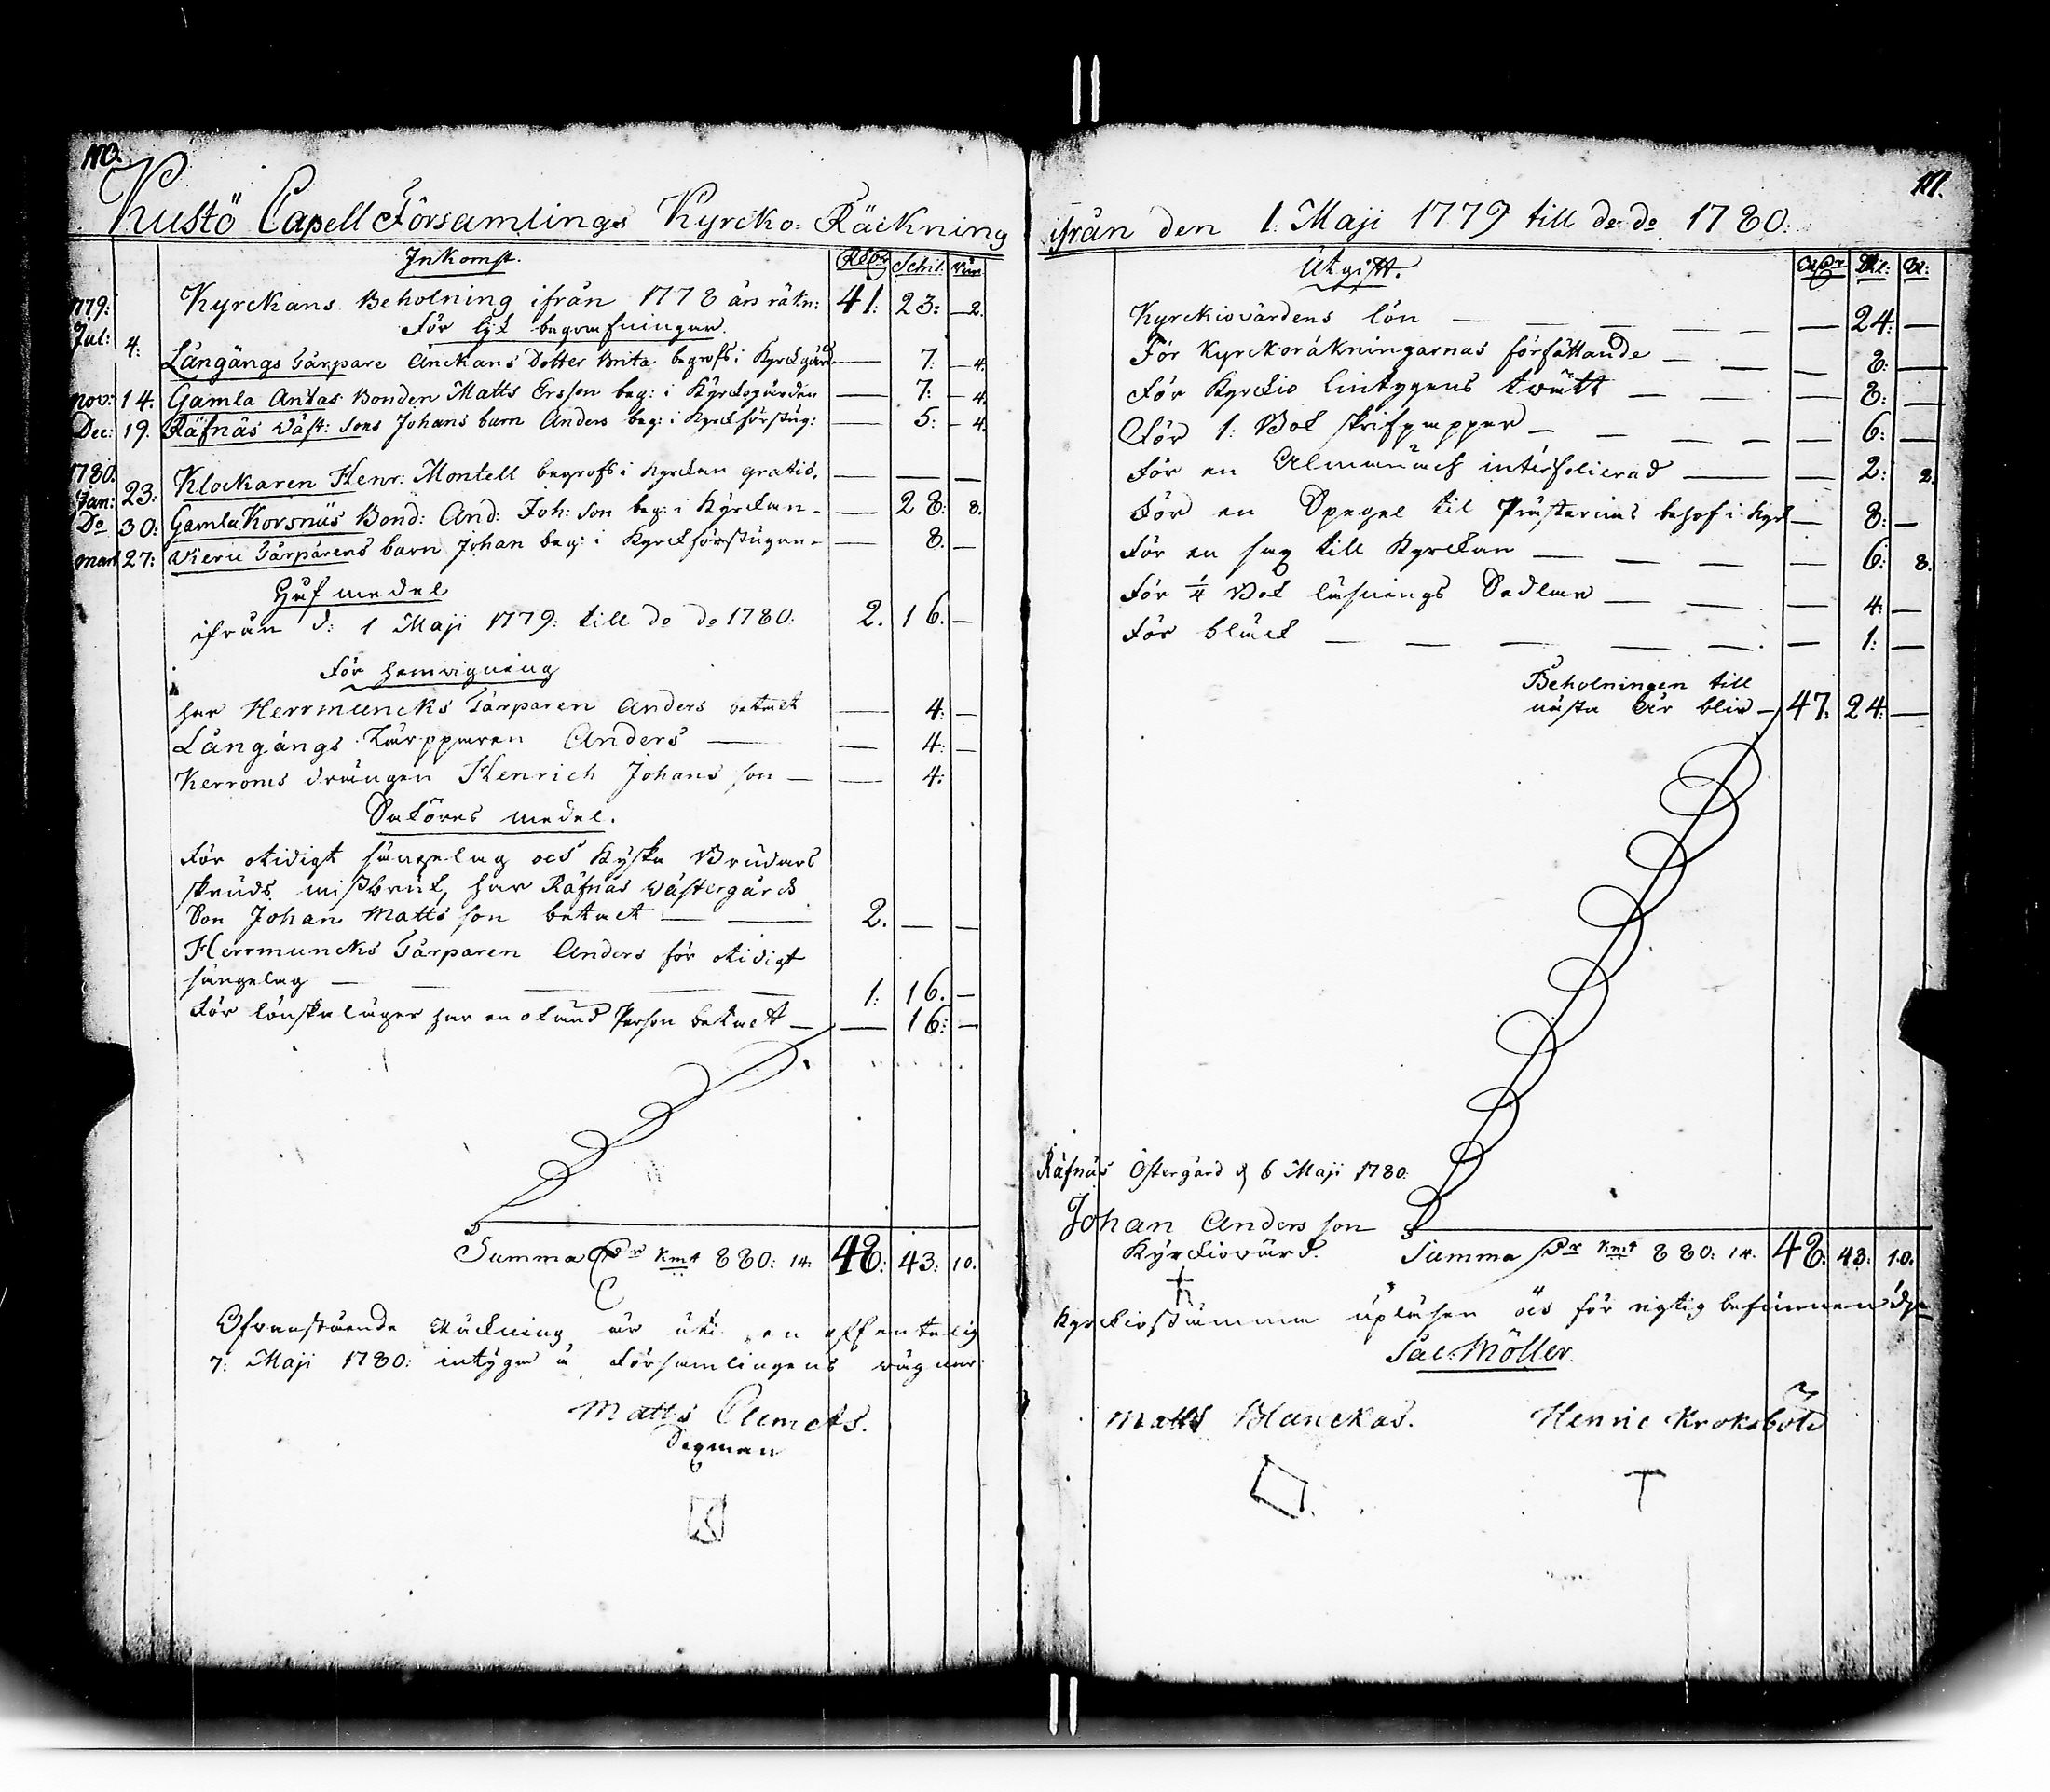 110.
Kustö Capell Församlings Kyrcko-Räckning
Inkomst. Rdr Schil: rün
1779: Kyrckans Beholning ifrån 1778 års räkn: 41: 23: —2.
För lijk begrafningar.
Jul: 4: Långängs Tårpare Änckans Dotter Brita begrofs i Kyrckgård — 7: —4.
nov: 14. Gamla Antas Bonden Matts Ersson beg: i Kÿrckogården — 7: —4.
Dec: 19. Räfnäs Wäst: Sons Johans barn Anders beg: i Kyrckförstug: — 5: —4.
1780. Klockaren Henr: Montell begrofs i Kyrckan gratis. — — —
Jan: 23:
Do 30: Gamla Korsnäs Bond: And: Joh: son beg: i Kÿrckan — 28: 8.
mart 27: Kieru Tårpårens barn Johan beg: i Kyrckförstugan — 8. —
Håf medel
ifrån d: 1 Maji 1779: till do do 1780: 2. 16. —
För hemvigning
har Herrmuncks Tårparen Anders betalt — 4: —
Långängs Tårpparen Anders — 4: —
Kerroms drängen Henrich Johans son — — 4:
Saköres medel.
För otidigt sängelag och Kÿska Brudars
skruds missbruk, har Räfnäs Wästergårds
Son Johan Matts son betalt — 2. — —
Herrmuncks Tårparen Anders för otidigt
sängelag — — — — 1: 16. —
För lönskaläger har en okänd Person betalt — — 16: —
Summa Rdr Kmt 880: 14: 48: 43: 10.
Ofvanstående Räckning är uti en offentelig
7: Maji 1780: intÿga å Församlingens vägnar.
Matts Clemets.
Sexman
111.
ifrån den 1: Maji 1779 till do do 1780:
Utgift. Rdr Skil: rl:
Kyrckiovärdens lön — — — 24: —
För Kyrckoräkningarnas författande — — — 8: —
För Kyrckio lintygens twätt — — — 8: —
För 1: Bok skrifpapper — — — 6: —
För en Almanach interfolierad — — 2: 2.
För en Spegel til Prästernas behof i Kyrk — 8: —
För en sax till Kyrckan — — — 6: 8.
För 1/4 Bok läsnings Sedlar — — — 4: —
För bläck — — — — 1: —
Beholningen till
nästa År blir — 47: 24: —
Räfnäs Östergård d 6 Maji 1780:
Johan Anders son
Kÿrckiovärd. Summa Rdr Kmt 880: 14. 48: 43: 10.
Kyrckiostämma upläsen och för rigtig befunnen d
Sac: Möller.
Matts Blanckas. Henric Kroksbole